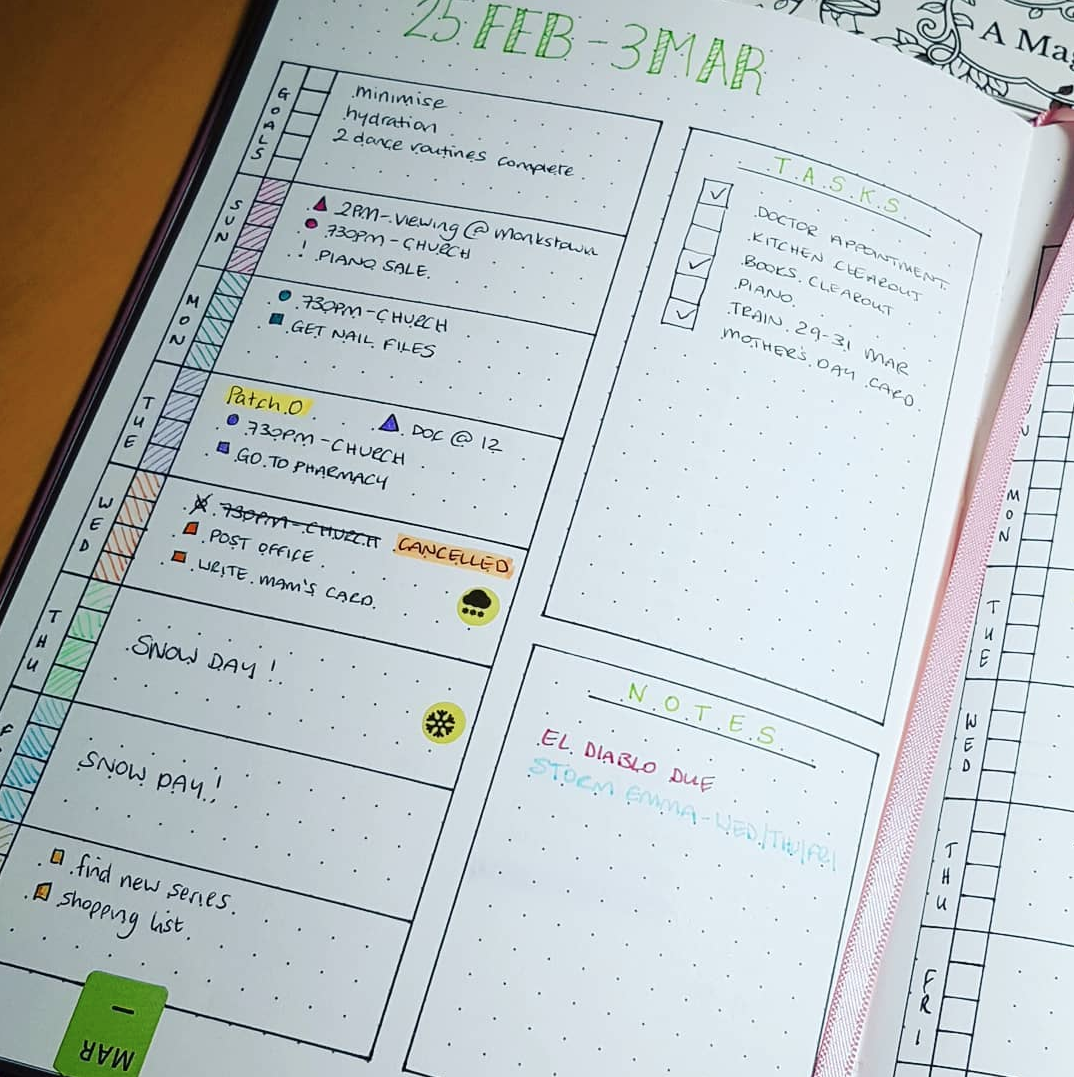 25 FEB - 3 MAR
GOALS
minimise
hydration
2 dance routines complete
SUN
2PM - Viewing @ Monkstown
730PM - CHURCH
! PIANO SALE.
MON
730PM - CHURCH
GET NAIL FILES
TUE
Patch.O
DOC @ 12
730PM - CHURCH
GO TO PHARMACY
WED
730PM - CHURCH CANCELLED
POST OFFICE
WRITE MAM'S CARD.
THU
SNOW DAY!
F
SNOW DAY!
find new series.
shopping list.
MAR
T.A.S.K.S.
DOCTOR APPOINTMENT
KITCHEN CLEAROUT
BOOKS CLEAROUT
PIANO
TRAIN 29-31 MAR
MOTHER'S DAY CARD
N.O.T.E.S.
EL DIABLO DUE
STORM EMMA - WED/THU/FRI
A Mag
N
MON
TUE
WED
THU
FRI